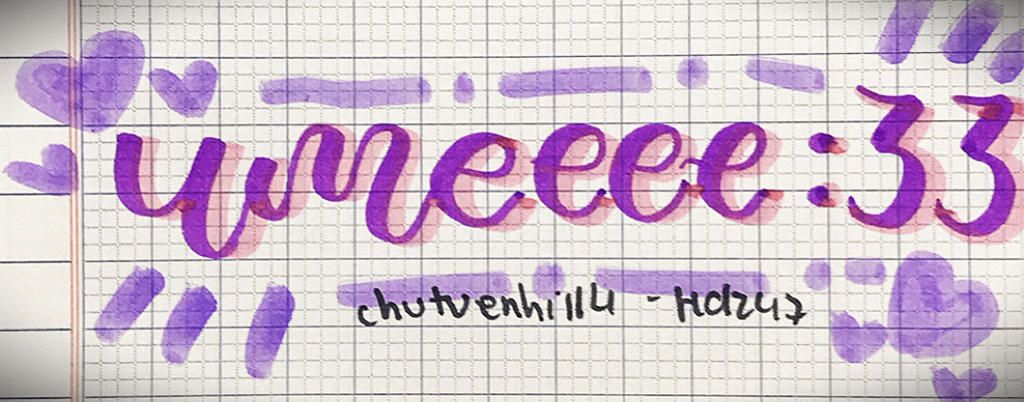 umeeee:33
chutuenhi114 - Hdz47